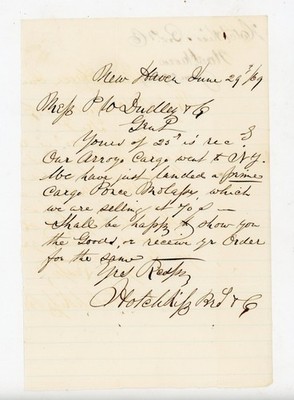 New Haven June 29th/69
Mess P W Dudley & Co
Gents
Yours of 25th is recd
Our Arroyo Cargo went to N.Y.
We have just landed a prime
Cargo Ponce Molass, which
we are selling at 70¢ —
Shall be happy to show you
the Goods, or receive yr Order
for the same
Yrs Respy
Hotchkiss Bros & Co